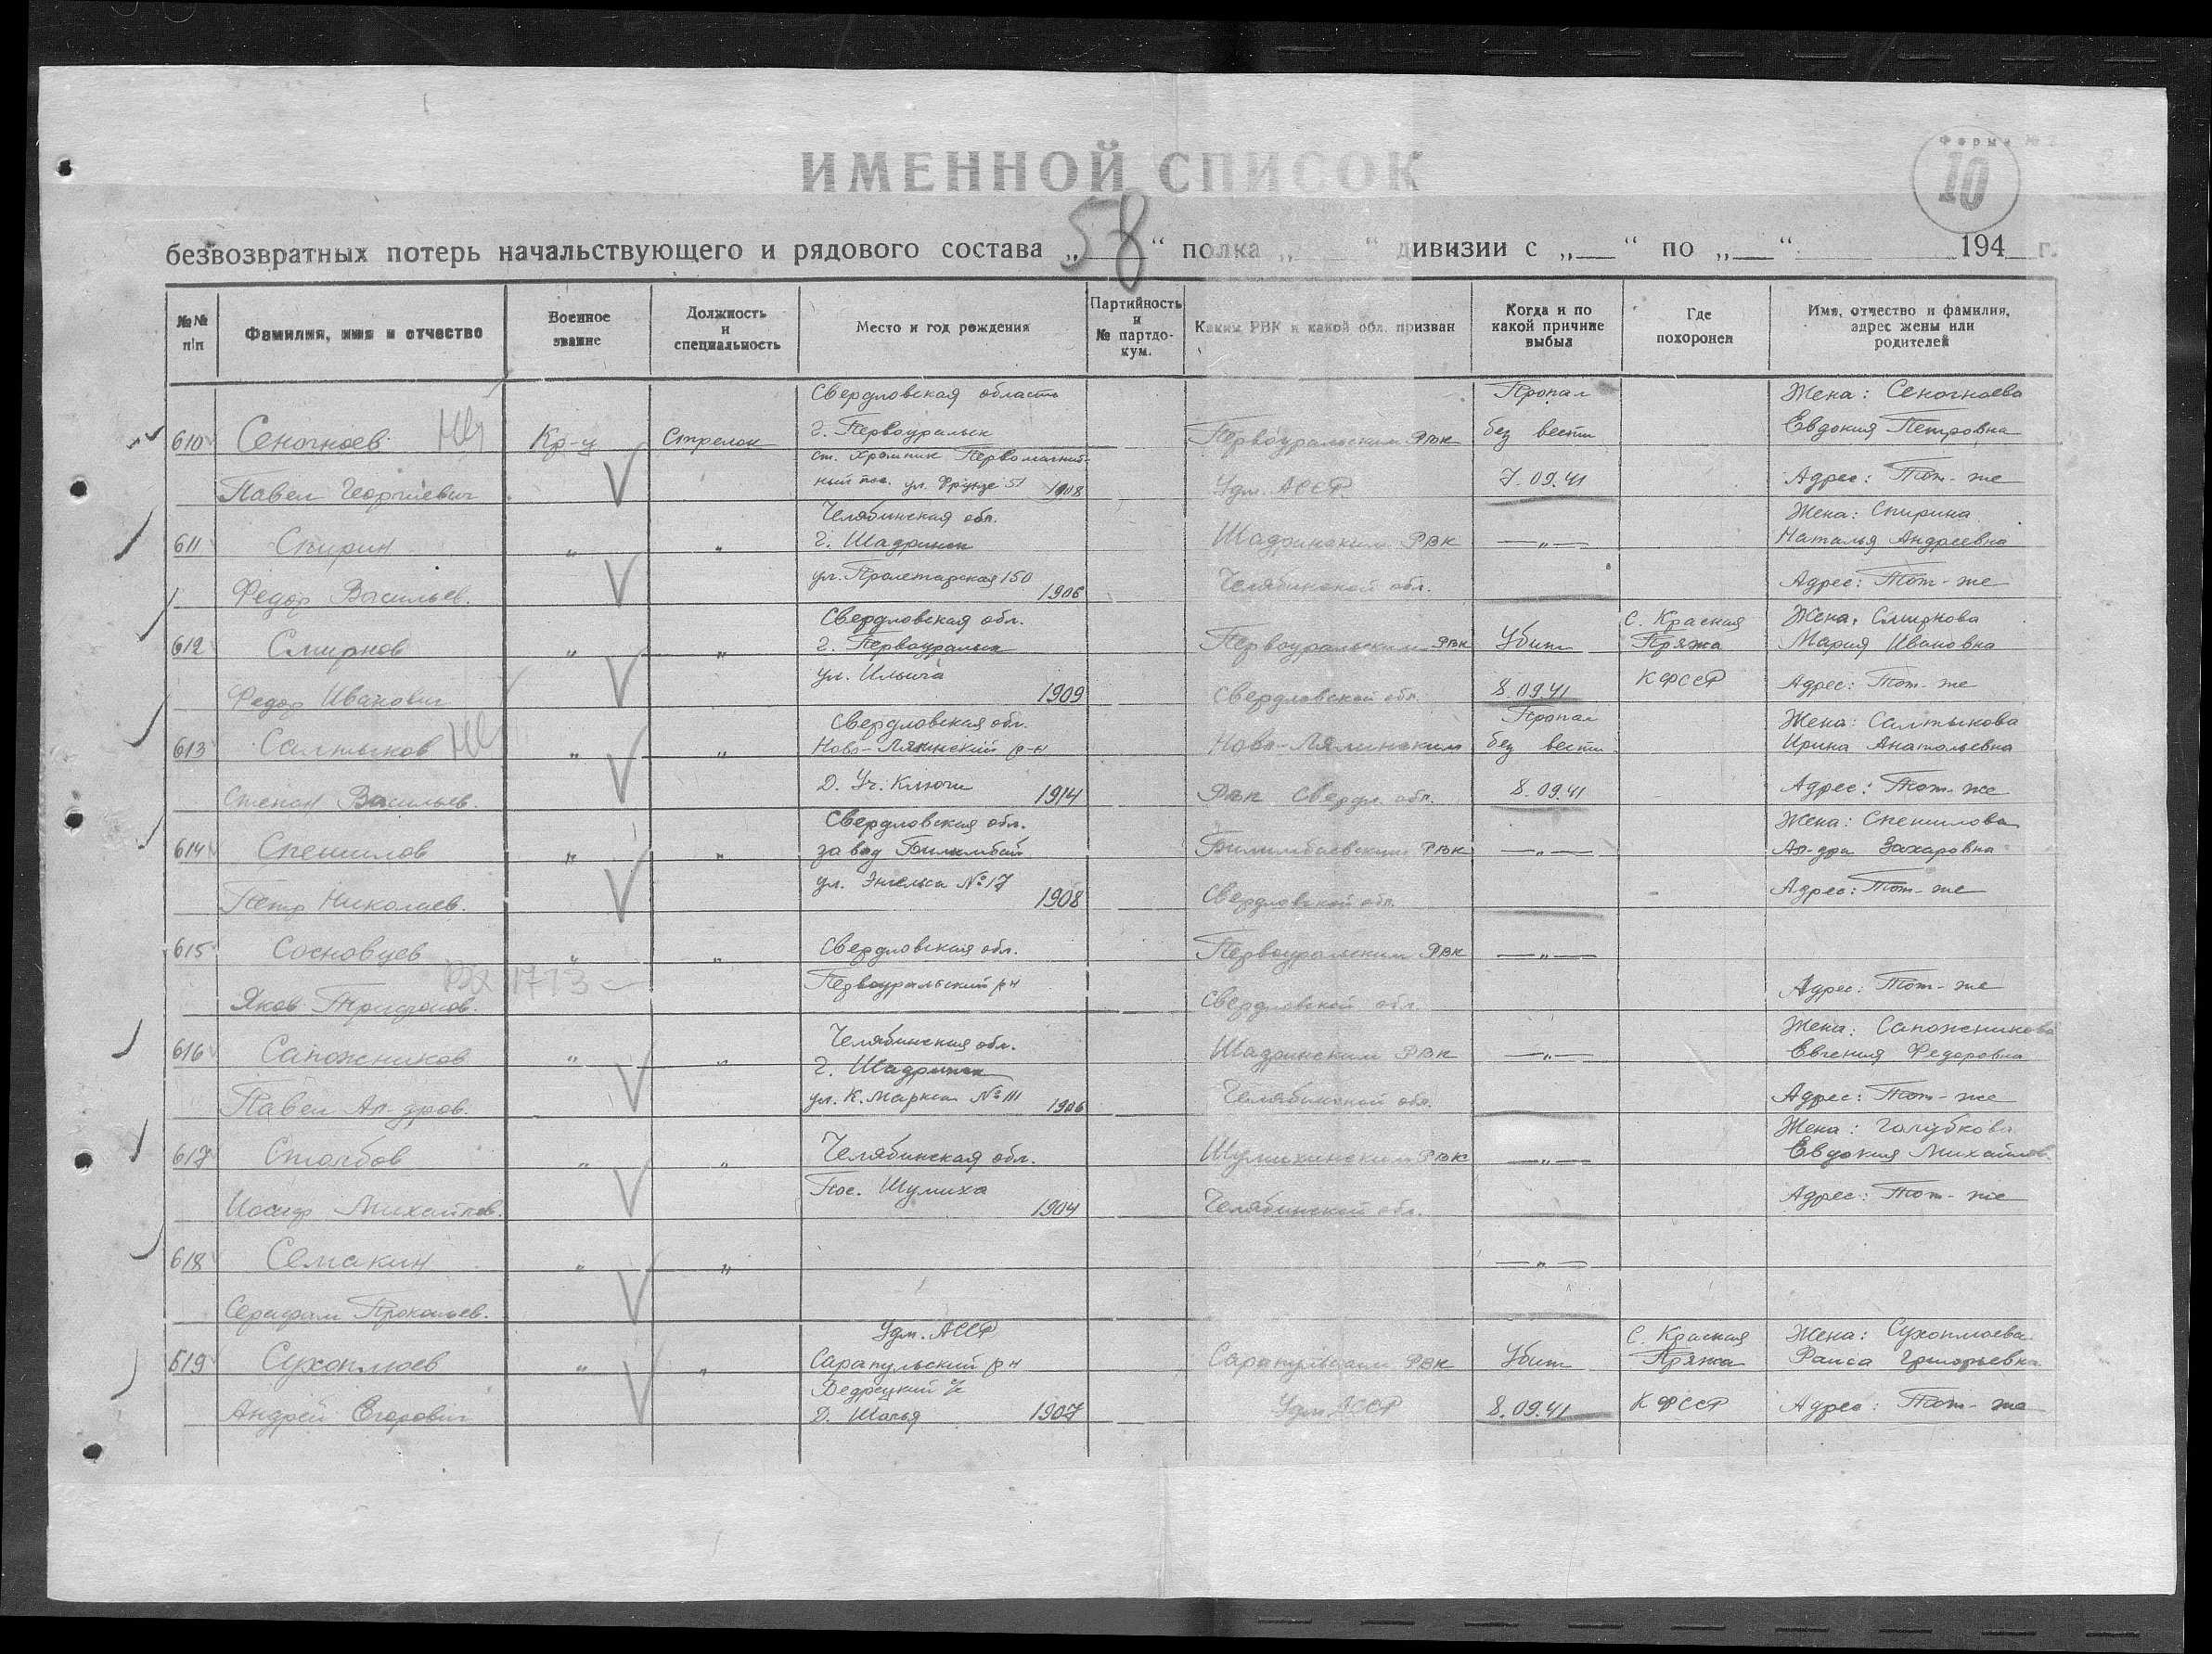 Форма № 2
10
ИМЕННОЙ СПИСОК
безвозвратных потерь начальствующего и рядового состава „58“ полка „ “ дивизии с „ “ по „ “ 194 г.
№№ п/п
Фамилия, имя и отчество
Военное звание
Должность и специальность
Место и год рождения
Партийность и № партдокум.
Каким РВК и какой обл. призван
Когда и по какой причине выбыл
Где похоронен
Имя, отчество и фамилия, адрес жены или родителей
Свердловская область Пропал Жена: Сеногноева
610 Сеногноев Кр-ц Стрелок г. Первоуральск Первоуральским РВК без вести Евдокия Петровна
ст. Хромпик
Павел Георгиевич ул. Фрунзе 51 1908 Удм. АССР 7.09.41 Адрес: Тот-же
Челябинская обл. Жена: Спирина
611 Спирин „ „ г. Шадринск Шадринским РВК —„— Наталья Андреевна
Федор Васильев. ул. Пролетарская 150 1906 Челябинской обл. Адрес: Тот-же
Свердловская обл. С. Красная Жена: Смирнова
612 Смирнов „ „ г. Первоуральск Первоуральским РВК Убит Пряжа Мария Ивановна
ул. Ильича
Федор Иванович 1909 Свердловской обл. 8.09.41 КФССР Адрес: Тот-же
Свердловская обл. Пропал Жена: Салтыкова
613 Салтыков „ „ Ново-Лялинский р-н Ново-Лялинским без вести Ирина Анатольевна
Степан Васильев. Д. Уч. Ключи 1914 РВК Свердл. обл. 8.09.41 Адрес: Тот-же
Свердловская обл. Жена: Спешилова
614 Спешилов „ „ завод Билимбай Билимбаевским РВК —„— Ал-дра Захаровна
ул. Энгельса №17
Петр Николаев. 1908 Свердловской обл. Адрес: Тот-же
615 Сосновцев „ „ Свердловская обл. Первоуральским РВК —„—
1713
Яков Трифонов. Первоуральский р-н Свердловской обл. Адрес: Тот-же
Челябинская обл. Жена: Сапожникова
616 Сапожников „ „ г. Шадринск Шадринским РВК —„— Евгения Федоровна
Павел Ал-дров. ул. К. Маркса № 111 1906 Челябинской обл. Адрес: Тот-же
Жена: Голубкова
617 Столбов „ „ Челябинская обл. Шумихинским РВК —„— Евдокия Михайлов.
Пос. Шумиха
Иосиф Михайлов. 1904 Челябинской обл. Адрес: Тот-же
618 Семакин „ „ —„—
Серафим Прокопьев.
Удм. АССР С. Красная Жена: Сухоплюева
619 Сухоплюев „ „ Сарапульский р-н Сарапульским РВК Убит Пряжа Раиса Григорьевна
Андрей Егорович Д. 1907 Удм. АССР 8.09.41 КФССР Адрес: Тот-же